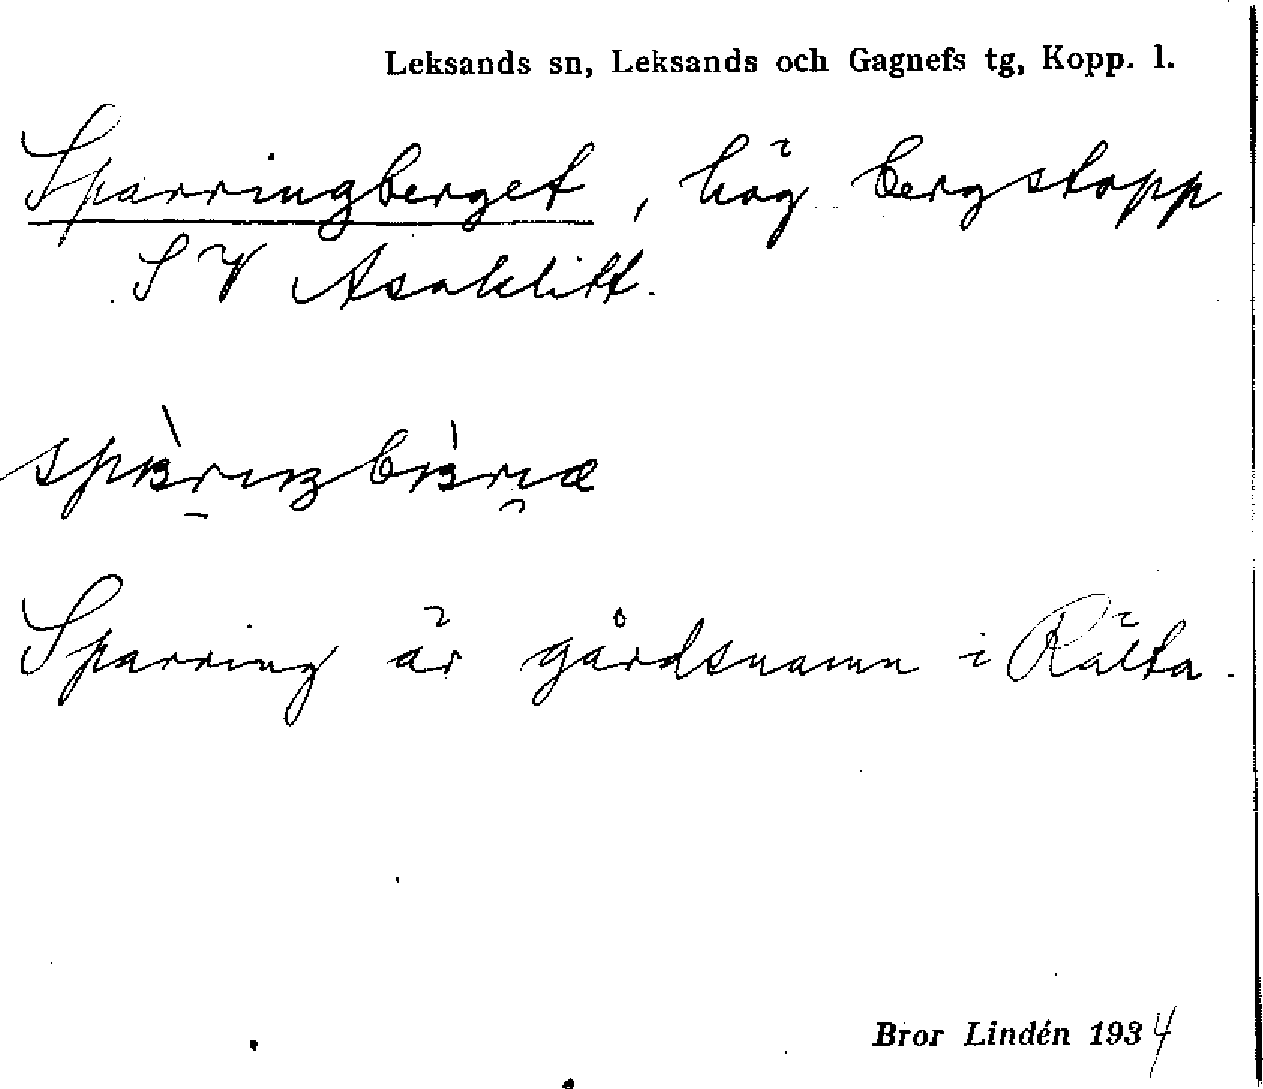 Leksands sn, Leksands och Gagnefs tg, Kopp. l.
Sparringberget, hög bergstopp
SV Asaklitt.
Sparring är gårdsnamn i Rälta.
Bror Lindén 1934